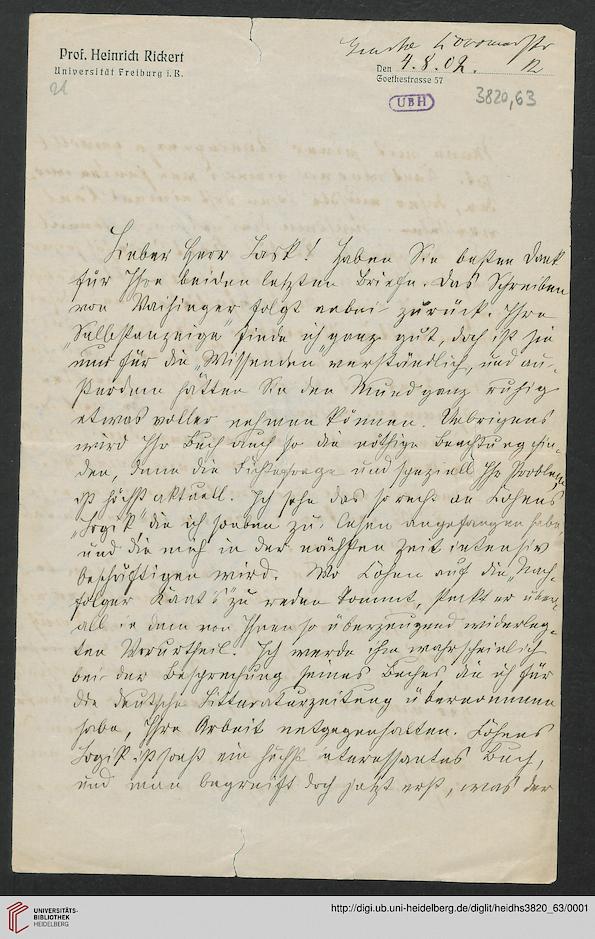 Prof. Heinrich Rickert
Universität Freiburg i. B.
Den 4.8.02.
Goethestrasse 57
UBH
3820,63
Lieber Herr Lask! Haben Sie besten Dank
für Ihre beiden letzten Briefe. Das Schreiben
von Vaihinger folgt anbei zurück. Ihre
„Selbstanzeige“ finde ich ganz gut, doch ist sie
nur für die „Wissenden“ verständlich, und au-
ßerdem hätten Sie den Mund ganz ruhig
etwas voller nehmen können. Uebrigens
wird Ihr Buch auch so die nöthige Beachtung fin-
den, denn die Fichtefrage und speziell Ihr Problem
ist höchst aktuell. Ich sehe das so recht an Cohens
„Logik“ die ich soeben zu lesen angefangen habe
und die mich in der nächsten Zeit intensiv
beschäftigen wird. Wo Cohen auf die „Nach-
folger Kants“ zu reden kommt, steckt er über-
all in dem von Ihnen so überzeugend widerleg-
ten Vorurtheil. Ich werde ihm wahrscheinlich
bei der Besprechung seines Buches, die ich für
die deutsche Litteraturzeitung übernommen
habe, Ihre Arbeit entgegenhalten. Cohens
Logik ist sonst ein höchst interessantes Buch,
und man begreift doch jetzt erst, was der
UNIVERSITÄTS-
BIBLIOTHEK
HEIDELBERG
http://digi.ub.uni-heidelberg.de/diglit/heidhs3820_63/0001